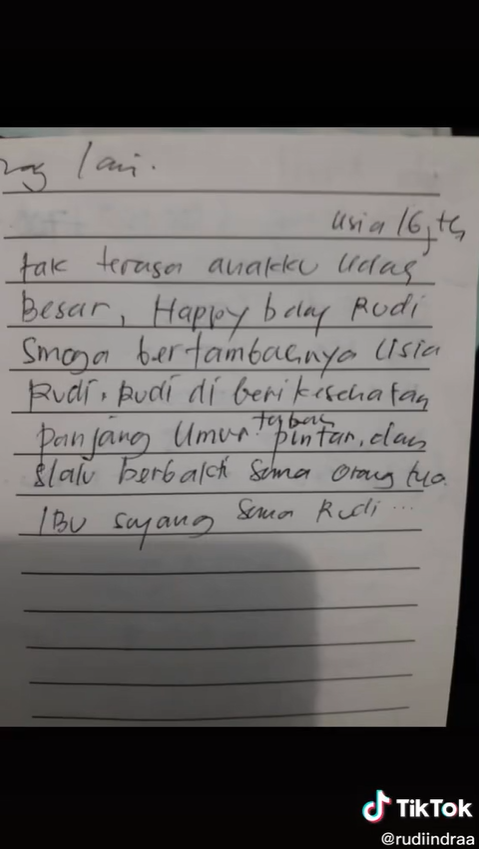 lain.
usia 16,th
tak terasa anakku udag
Besar, Happy bday Rudi
Smoga bertambagnya usia
Rudi, Rudi di beri kesehatan
tabag
panjang umur pintar, dan
slalu berbakti sama orang tua.
IBU sayang sama Rudi...
TikTok
@rudiindraa